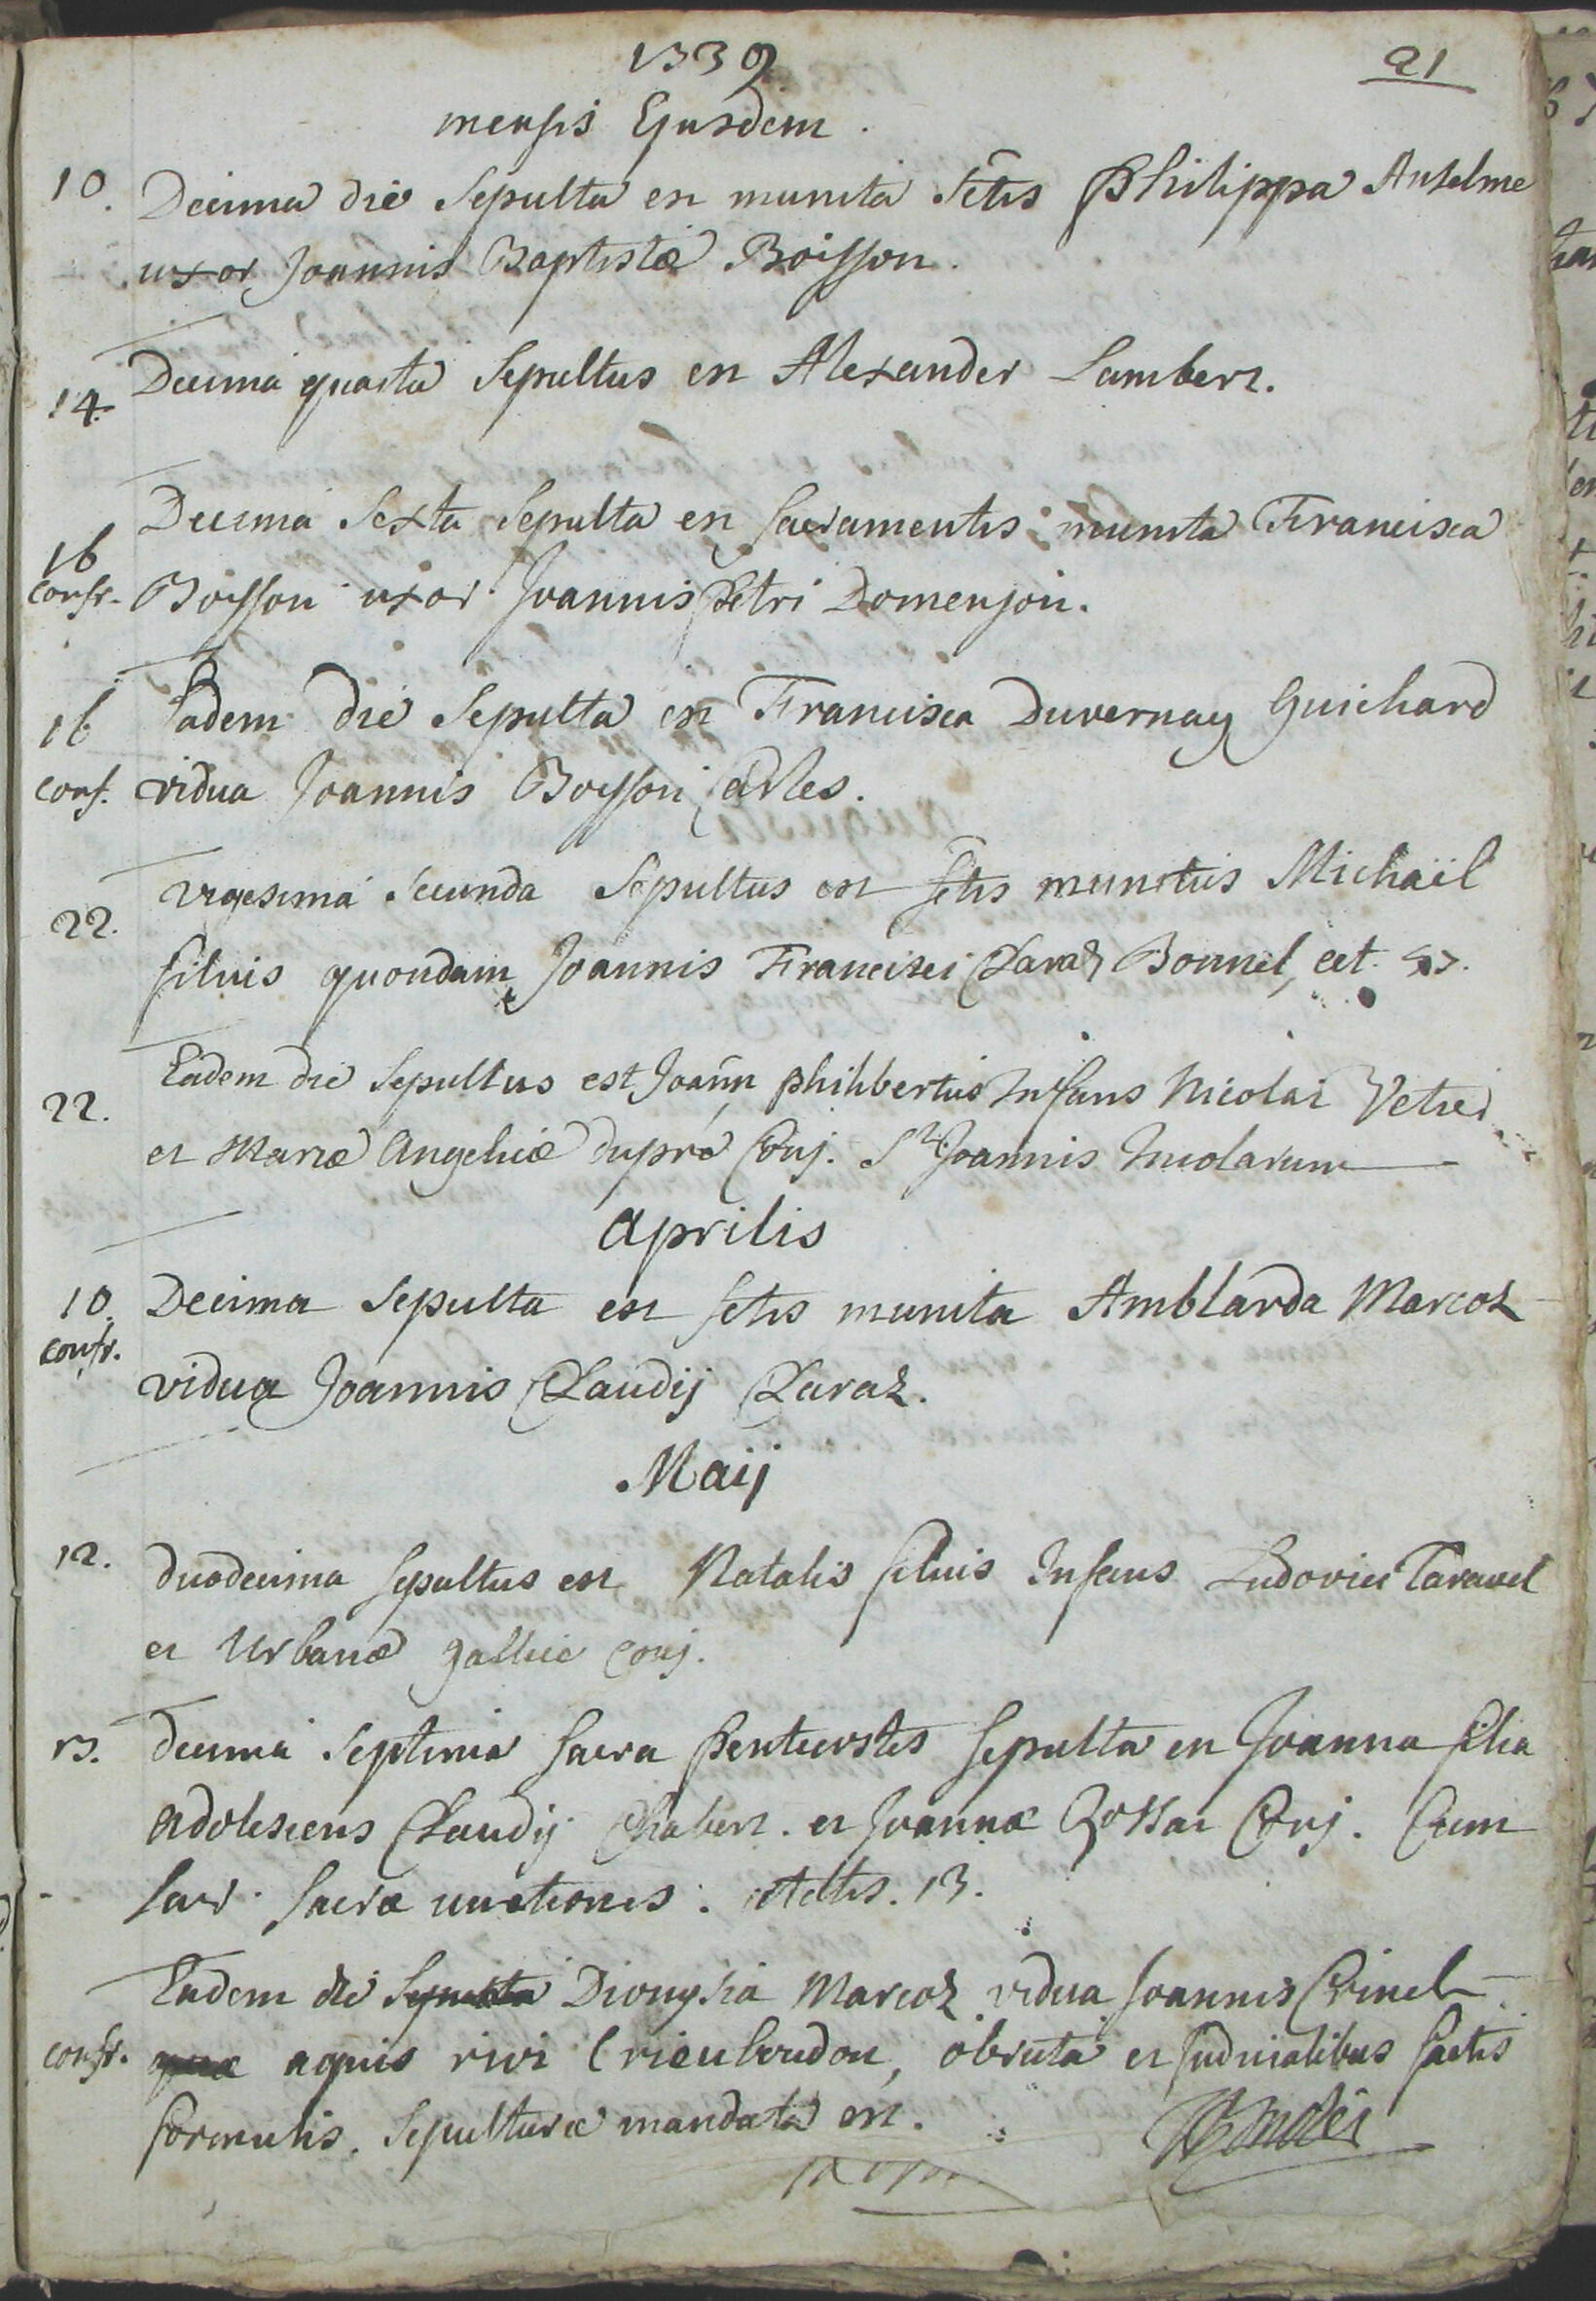 1739
21
mensis Ejusdem.
10. Decima die Sepulta est munita Sctis Philippa Anselme
uxor Joannis Baptistæ Boisson.
14. Decima quarta Sepultus est Alexander Lambert.
16 Decima Sexta Sepulta est Sacramentis munita Francisca
confr. Boisson uxor Joannis Petri Domenjon.
16 Eadem die Sepulta est Francisca Duvernay Guichard
conf. vidua Joannis Boisson
22. Vigesima Secunda Sepultus est Sctis munitus Michaël
filius quondam Joannis Francisci Claraz Bonnel, æt.
22. Eadem die Sepultus est Joann philibertus Infans Nicolai Vetier
et Mariæ Angelicæ dupré Conj. Sti Joannis
Aprilis
10. Decima Sepulta est Sctis munita Amblarda Marcoz
confr. vidua Joannis Claudij Claraz.
Maij
12. duodecima Sepultus est Natalis filius Infans Ludovici Taravel
et Urbanæ gallice Conj.
17. decima Septima Sacra Pentecostes Sepulta est Joanna filia
adolescens Claudij Chabert. et Joannæ Conj. Cum
Sacr. Sacræ unctionis. ætatis. 13.
Eadem die Sepulta Dionysia Marcoz vidua Joannis Crinel
confr. quæ aquis rivi Crieuloudou, obruta et Judicialibus factis
formulis. Sepulturæ mandata est.